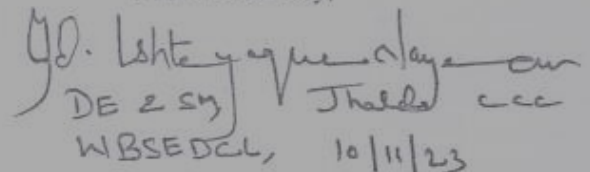 Md. Ishteyaque
DE & SM, Jhalda CCC
WBSEDCL, 10/11/23